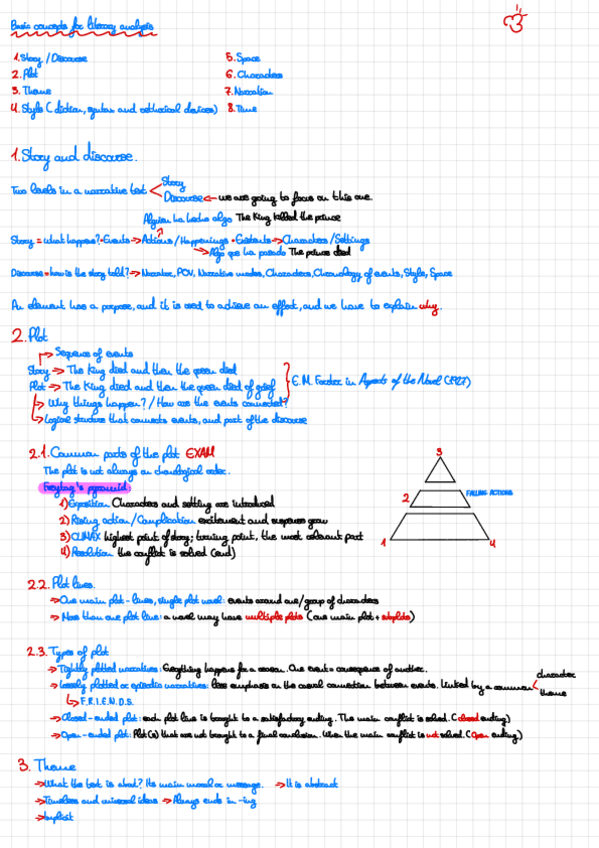 Basic concepts for literary analysis
1. Story / Discourse
2. Plot
3. Theme
4. Style (diction, syntax and rethorical devices)
5. Space
6. Characters
7. Narration
8. Time
1. Story and discourse.
Two levels in a narrative text
Story
Discourse ← we are going to focus on this one.
Alguien ha hecho algo The King killed the prince
Story = what happens? • Events → Actions / Happenings • Existents → Characters / Settings
→ Algo que ha pasado The prince died
Discourse = how is the story told? → Narrator, POV, Narrative modes, Characters, Chronology of events, Style, Space
An element has a purpose, and it is used to achieve an effect, and we have to explain why.
2. Plot
→ Sequence of events
Story → The King died and then the queen died
Plot → The King died and then the queen died of grief
E.M. Forster in Aspects of the Novel (1927)
→ Why things happen? / How are the events connected?
→ Logical structure that connects events, and part of the discourse
2.1. Common parts of the plot EXAM
The plot is not always in chronological order.
Freytag's pyramid:
1) Exposition Characters and setting are introduced
2) Rising action / Complication excitement and suspense grow
3) CLIMAX highest point of story; turning point, the most relevant part
4) Resolution the conflict is solved (end)
3
2
FALLING ACTIONS
1
4
2.2. Plot lines.
→ One main plot-lines, single plot novel: events around one/group of characters
→ More than one plot line: a novel may have multiple plots (one main plot + subplots)
2.3. Types of plot
→ Tightly plotted narratives: Everything happens for a reason. One event = consequence of another.
→ Loosely plotted or episodic narratives: less emphasis on the causal connection between events. Linked by a common
character
theme
→ F.R.I.E.N.D.S.
→ Closed-ended plot: each plot line is brought to a satisfactory ending. The main conflict is solved. (closed ending)
→ Open-ended plot: Plot(s) that are not brought to a final conclusion. When the main conflict is not solved. (Open ending)
3. Theme
→ What the text is about? Its main moral or message. → It is abstract
→ Timeless and universal ideas → Always ends in -ing
→ Implicit